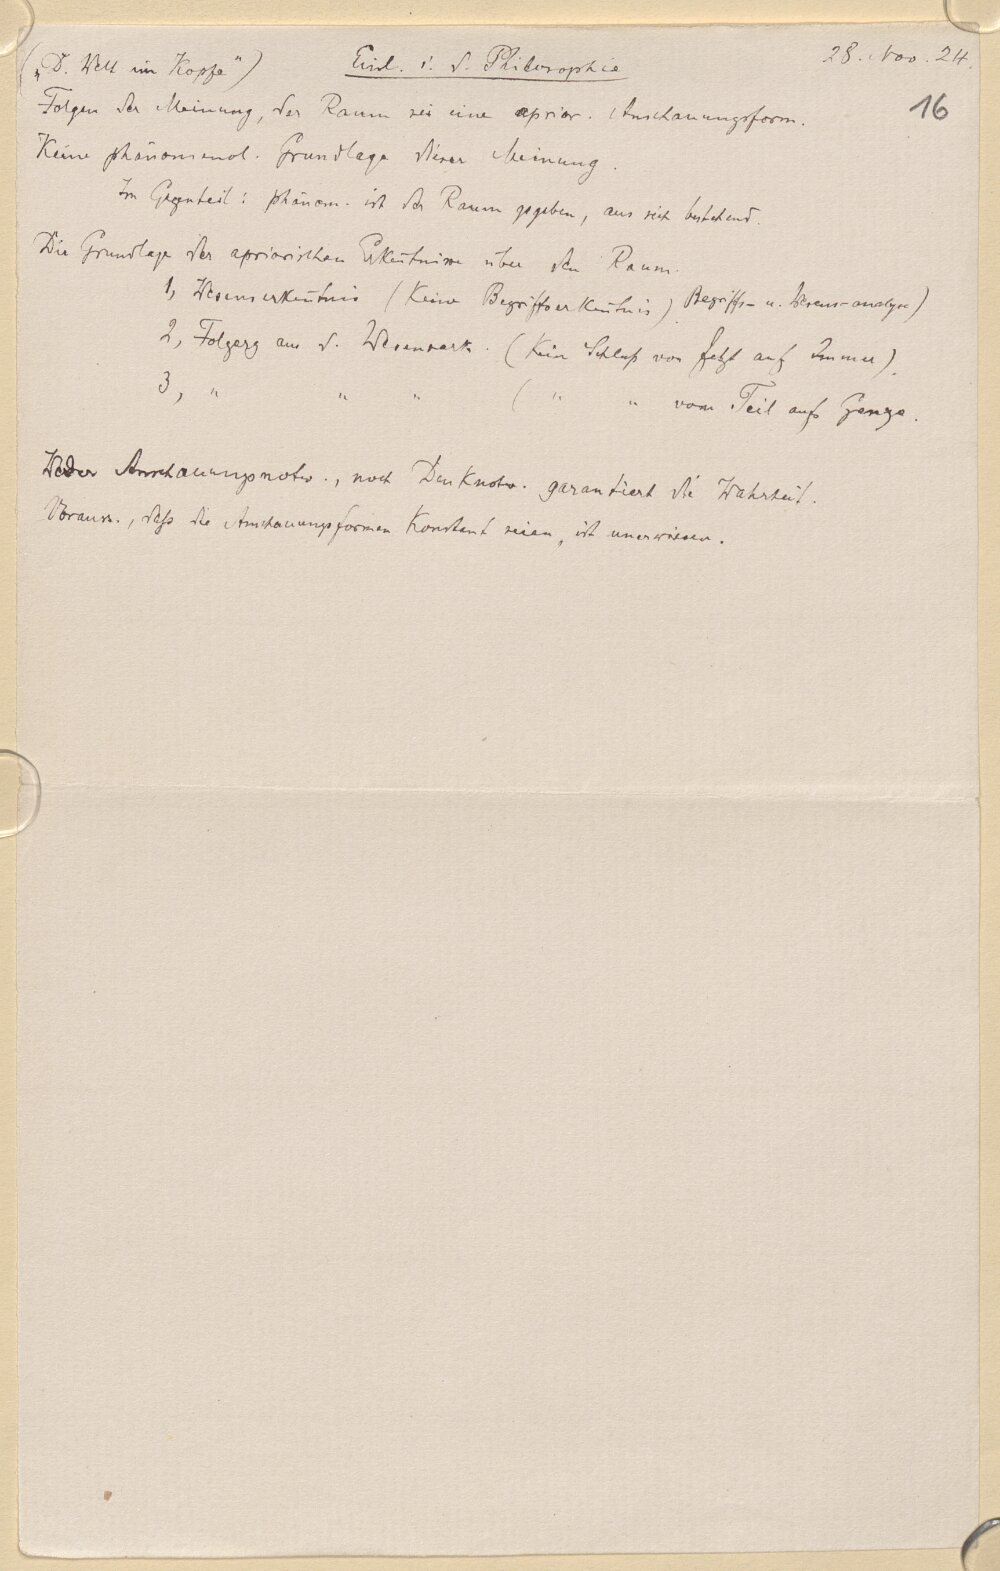 („D. Welt im Kopfe“) Einl. i. d. Philosophie 28. Nov. 24.
16
Folgen der Meinung, der Raum sei eine aprior. Anschauungsform.
Keine phänomenol. Grundlage dieser Meinung.
Im Gegenteil: phänom. ist der Raum gegeben, aus sich bestehend.
Die Grundlage der apriorischen Erkenntnisse über den Raum.
1, Wesenserkenntnis (Keine Begriffserkenntnis) Begriffs- u. Wesens-analyse)
2, Folgerg aus d. (Kein Schluß von Jetzt auf Immer).
3, " " " ( " " vom Teil aufs Ganze.
Weder Anschauungsnotw., noch Denknotw. garantiert die Wahrheit.
Vorauss., daß die Anschauungsformen Konstant seien, ist unerwiesen.